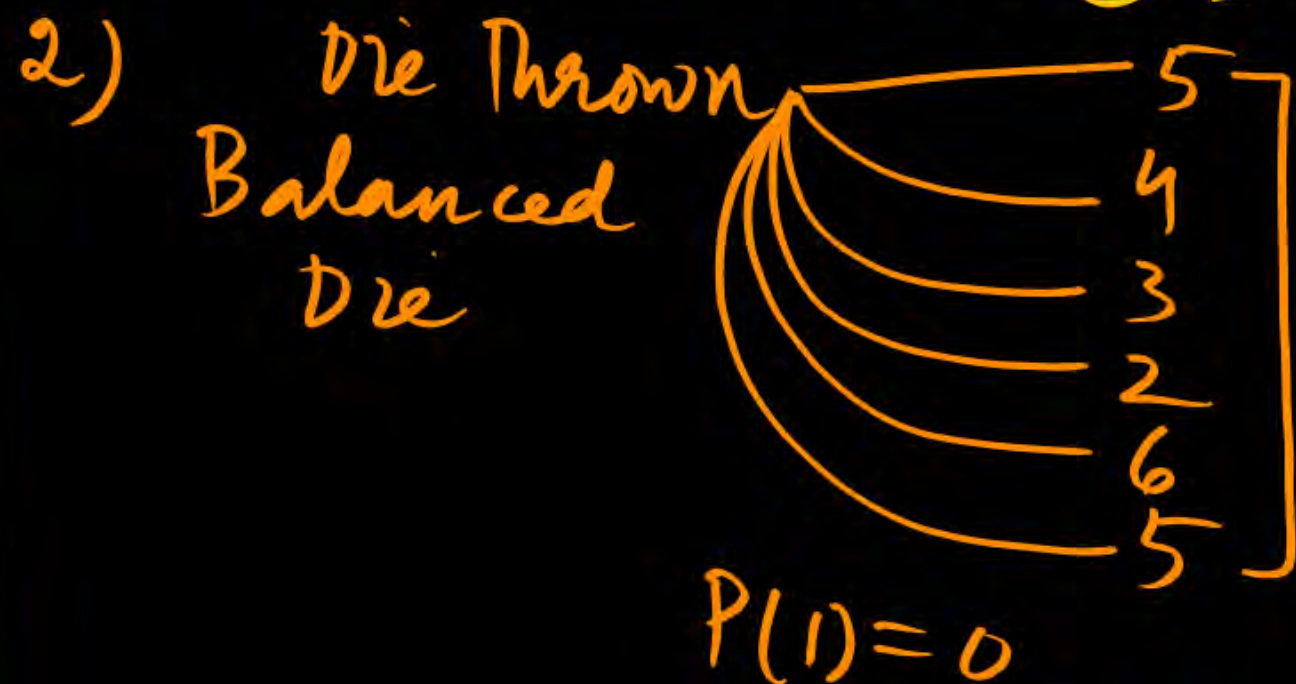 2) Die Thrown
Balanced
Die
5
4
3
2
6
5
P(1) = 0